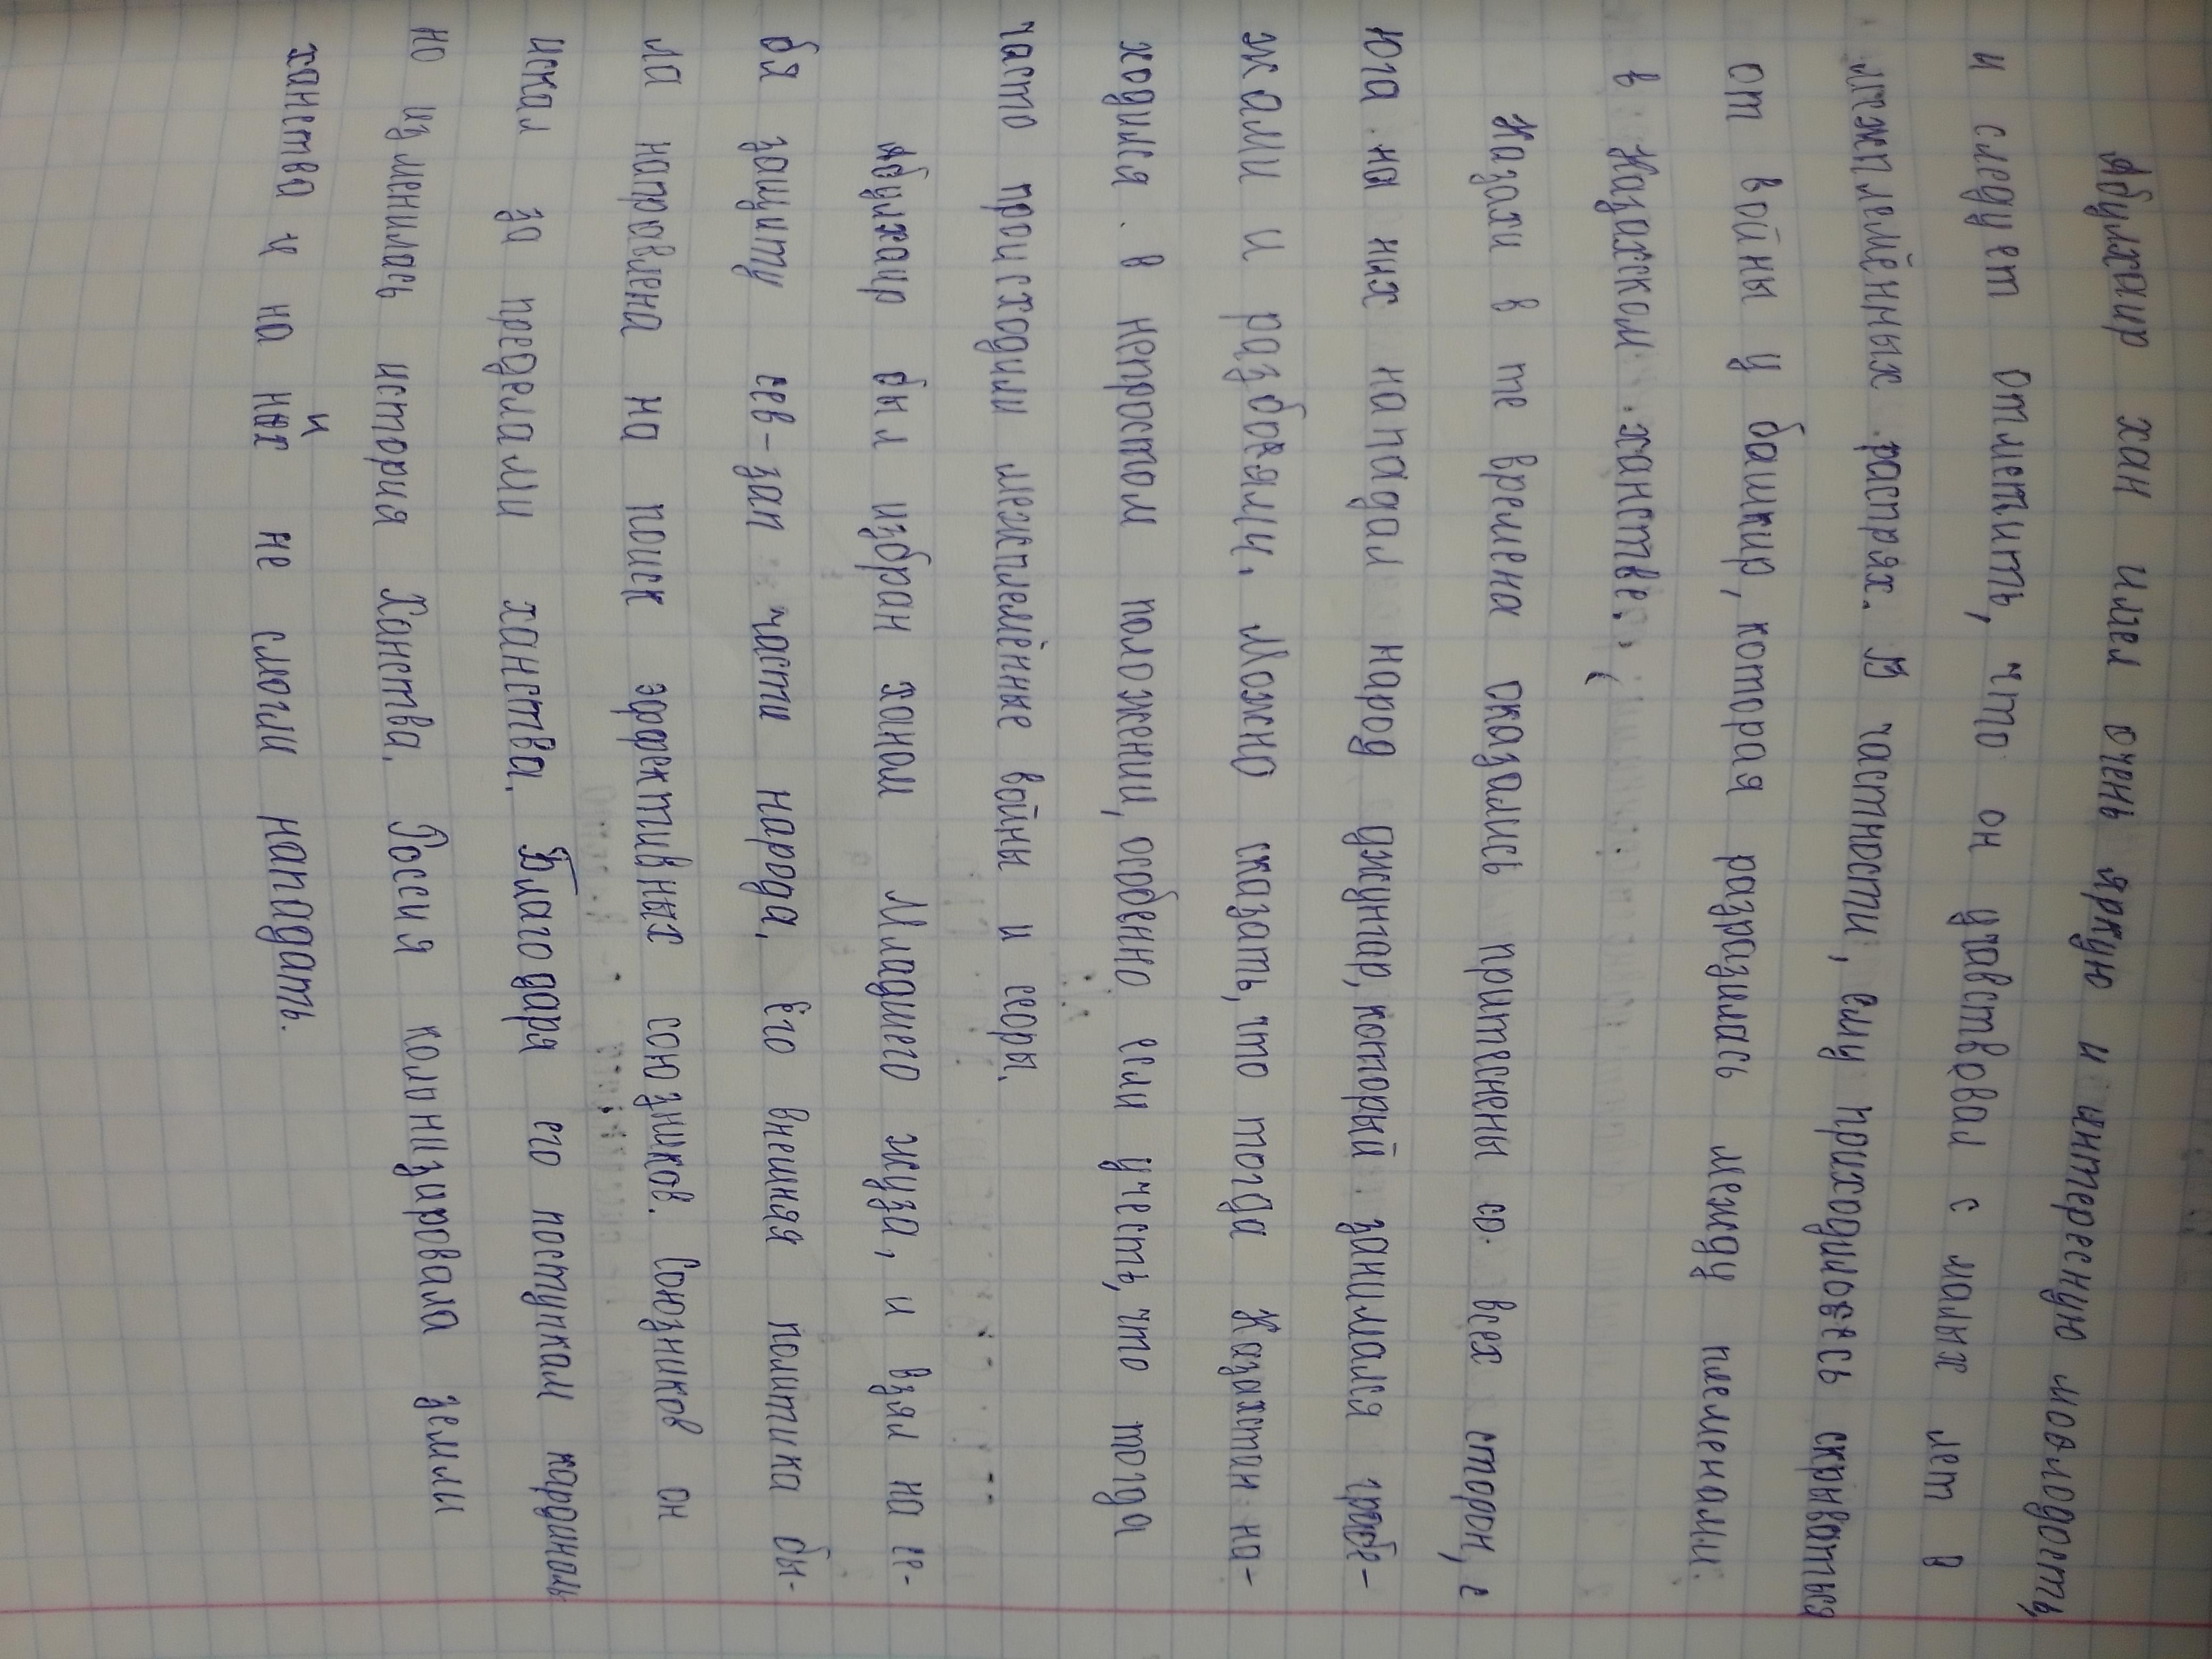 Абулхаир хан имел очень яркую и интересную молодость,
и следует отметить, что он учавствовал с малых лет в
межплемённых распрях. В частности, ему приходилось скрываться
от войны у башкир, которая разразилась между племенами
в Казахском ханстве.
Казахи в те времена оказались притеснены со всех сторон, с
юга на них нападал народ джунгар, который занимался грабе-
жами и разбоями. Можно сказать, что тогда Казахстан на-
ходился в непростом положении, особенно если учесть, что тогда
часто происходили межплемённые войны и ссоры.
Абулхаир был избран ханом Младшего жуза, и взял на се-
бя защиту сев-зап части народа. Его внешняя политика бы-
ла направлена на поиск эффективных союзников. Союзников он
искал за пределами ханства. Благодаря его поступкам кардиналь
но изменилась история Ханства. Россия колонизировала земли
ханства и на них не смогли нападать.